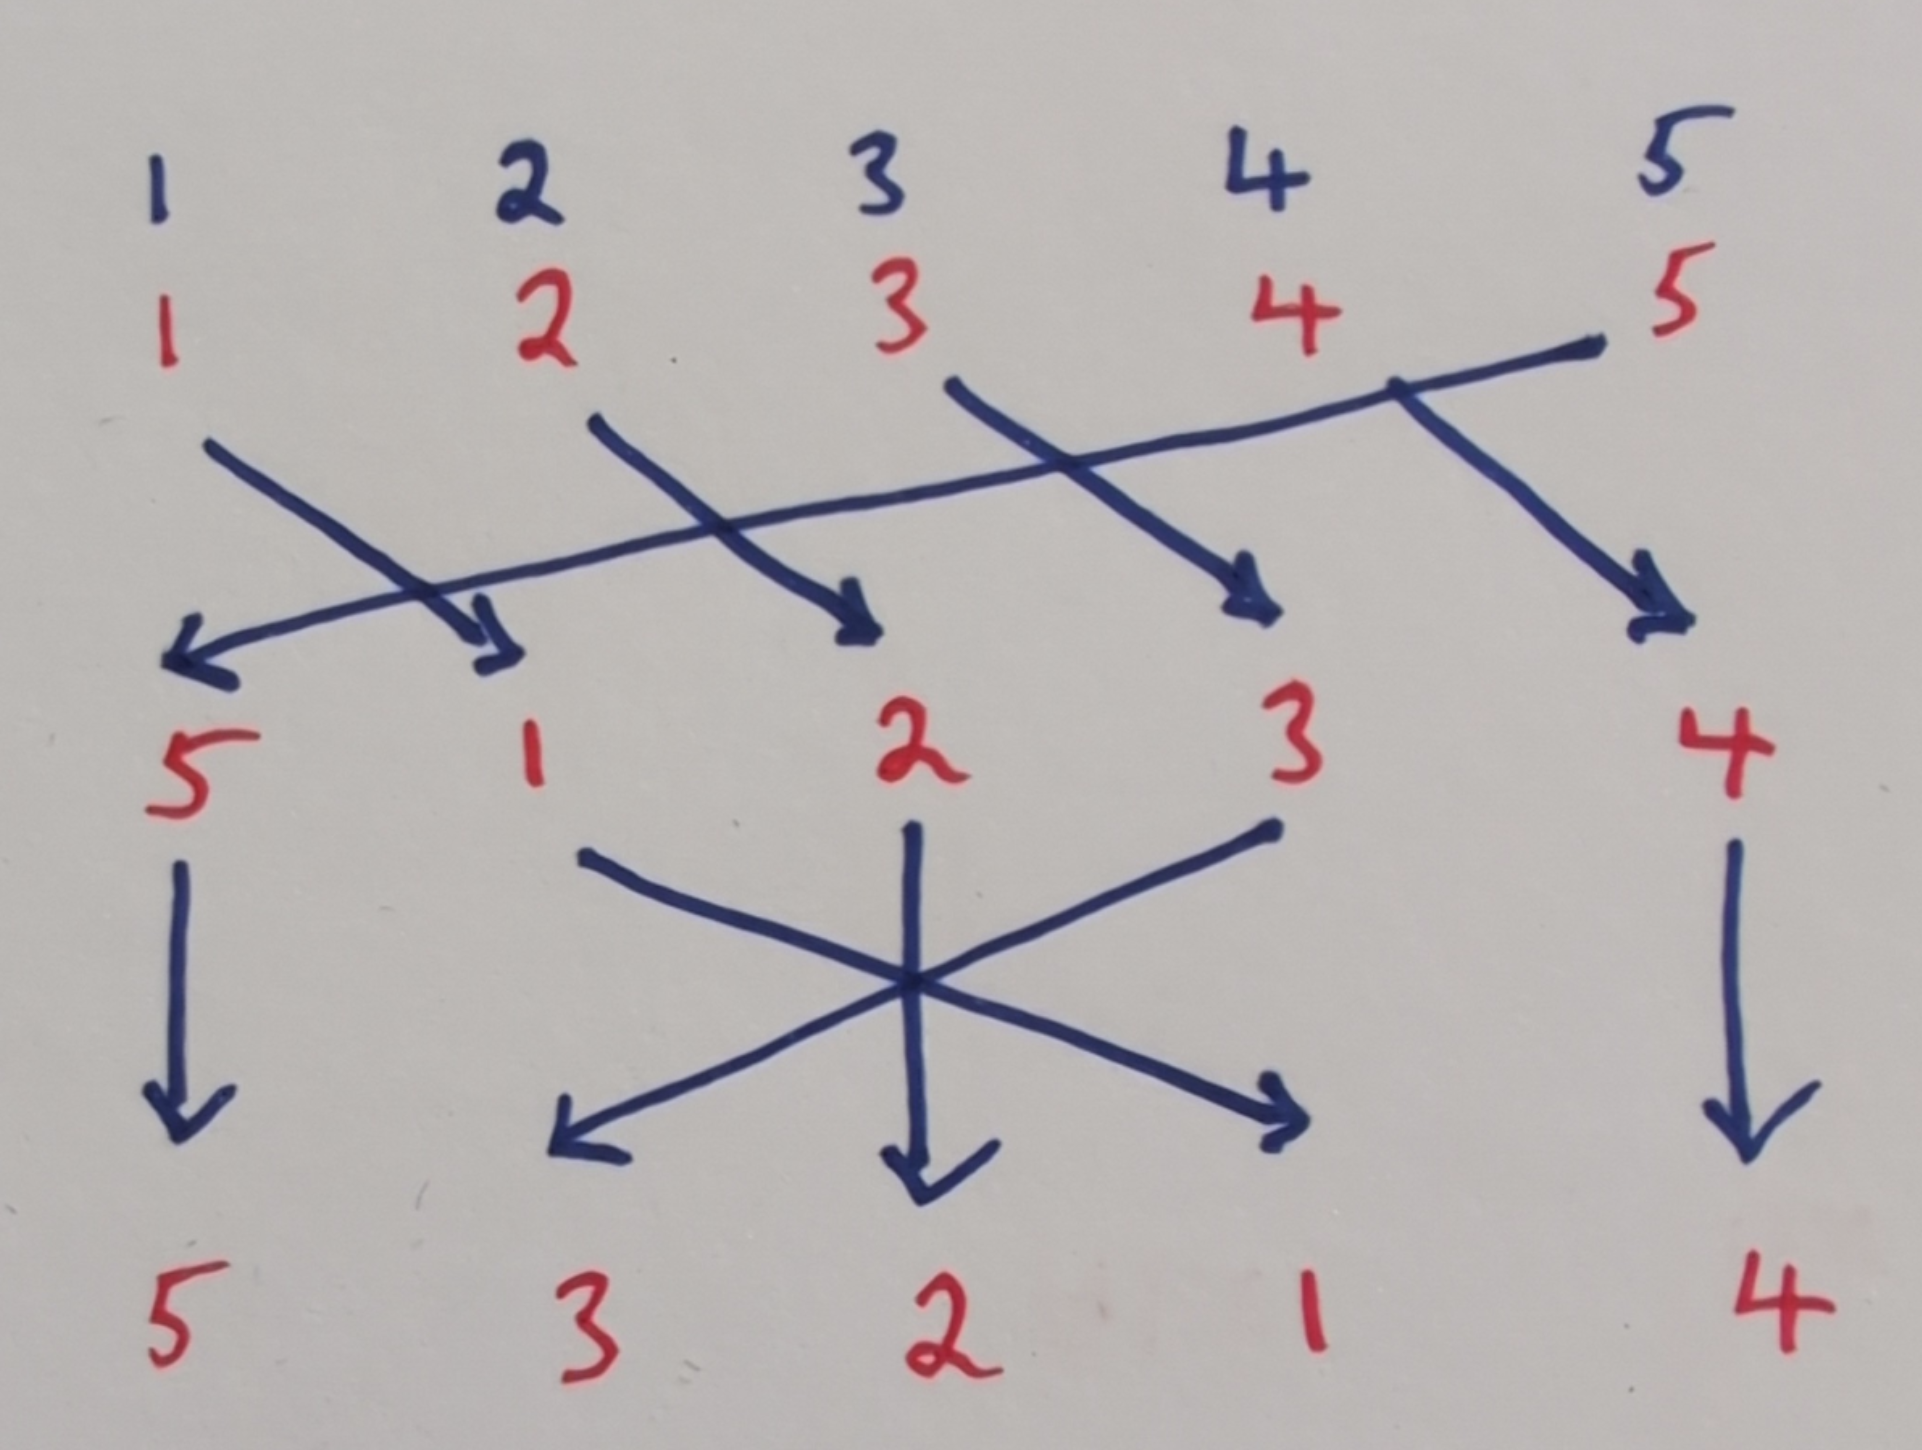 1 2 3 4 5
1 2 3 4 5
5 1 2 3 4
5 3 2 1 4